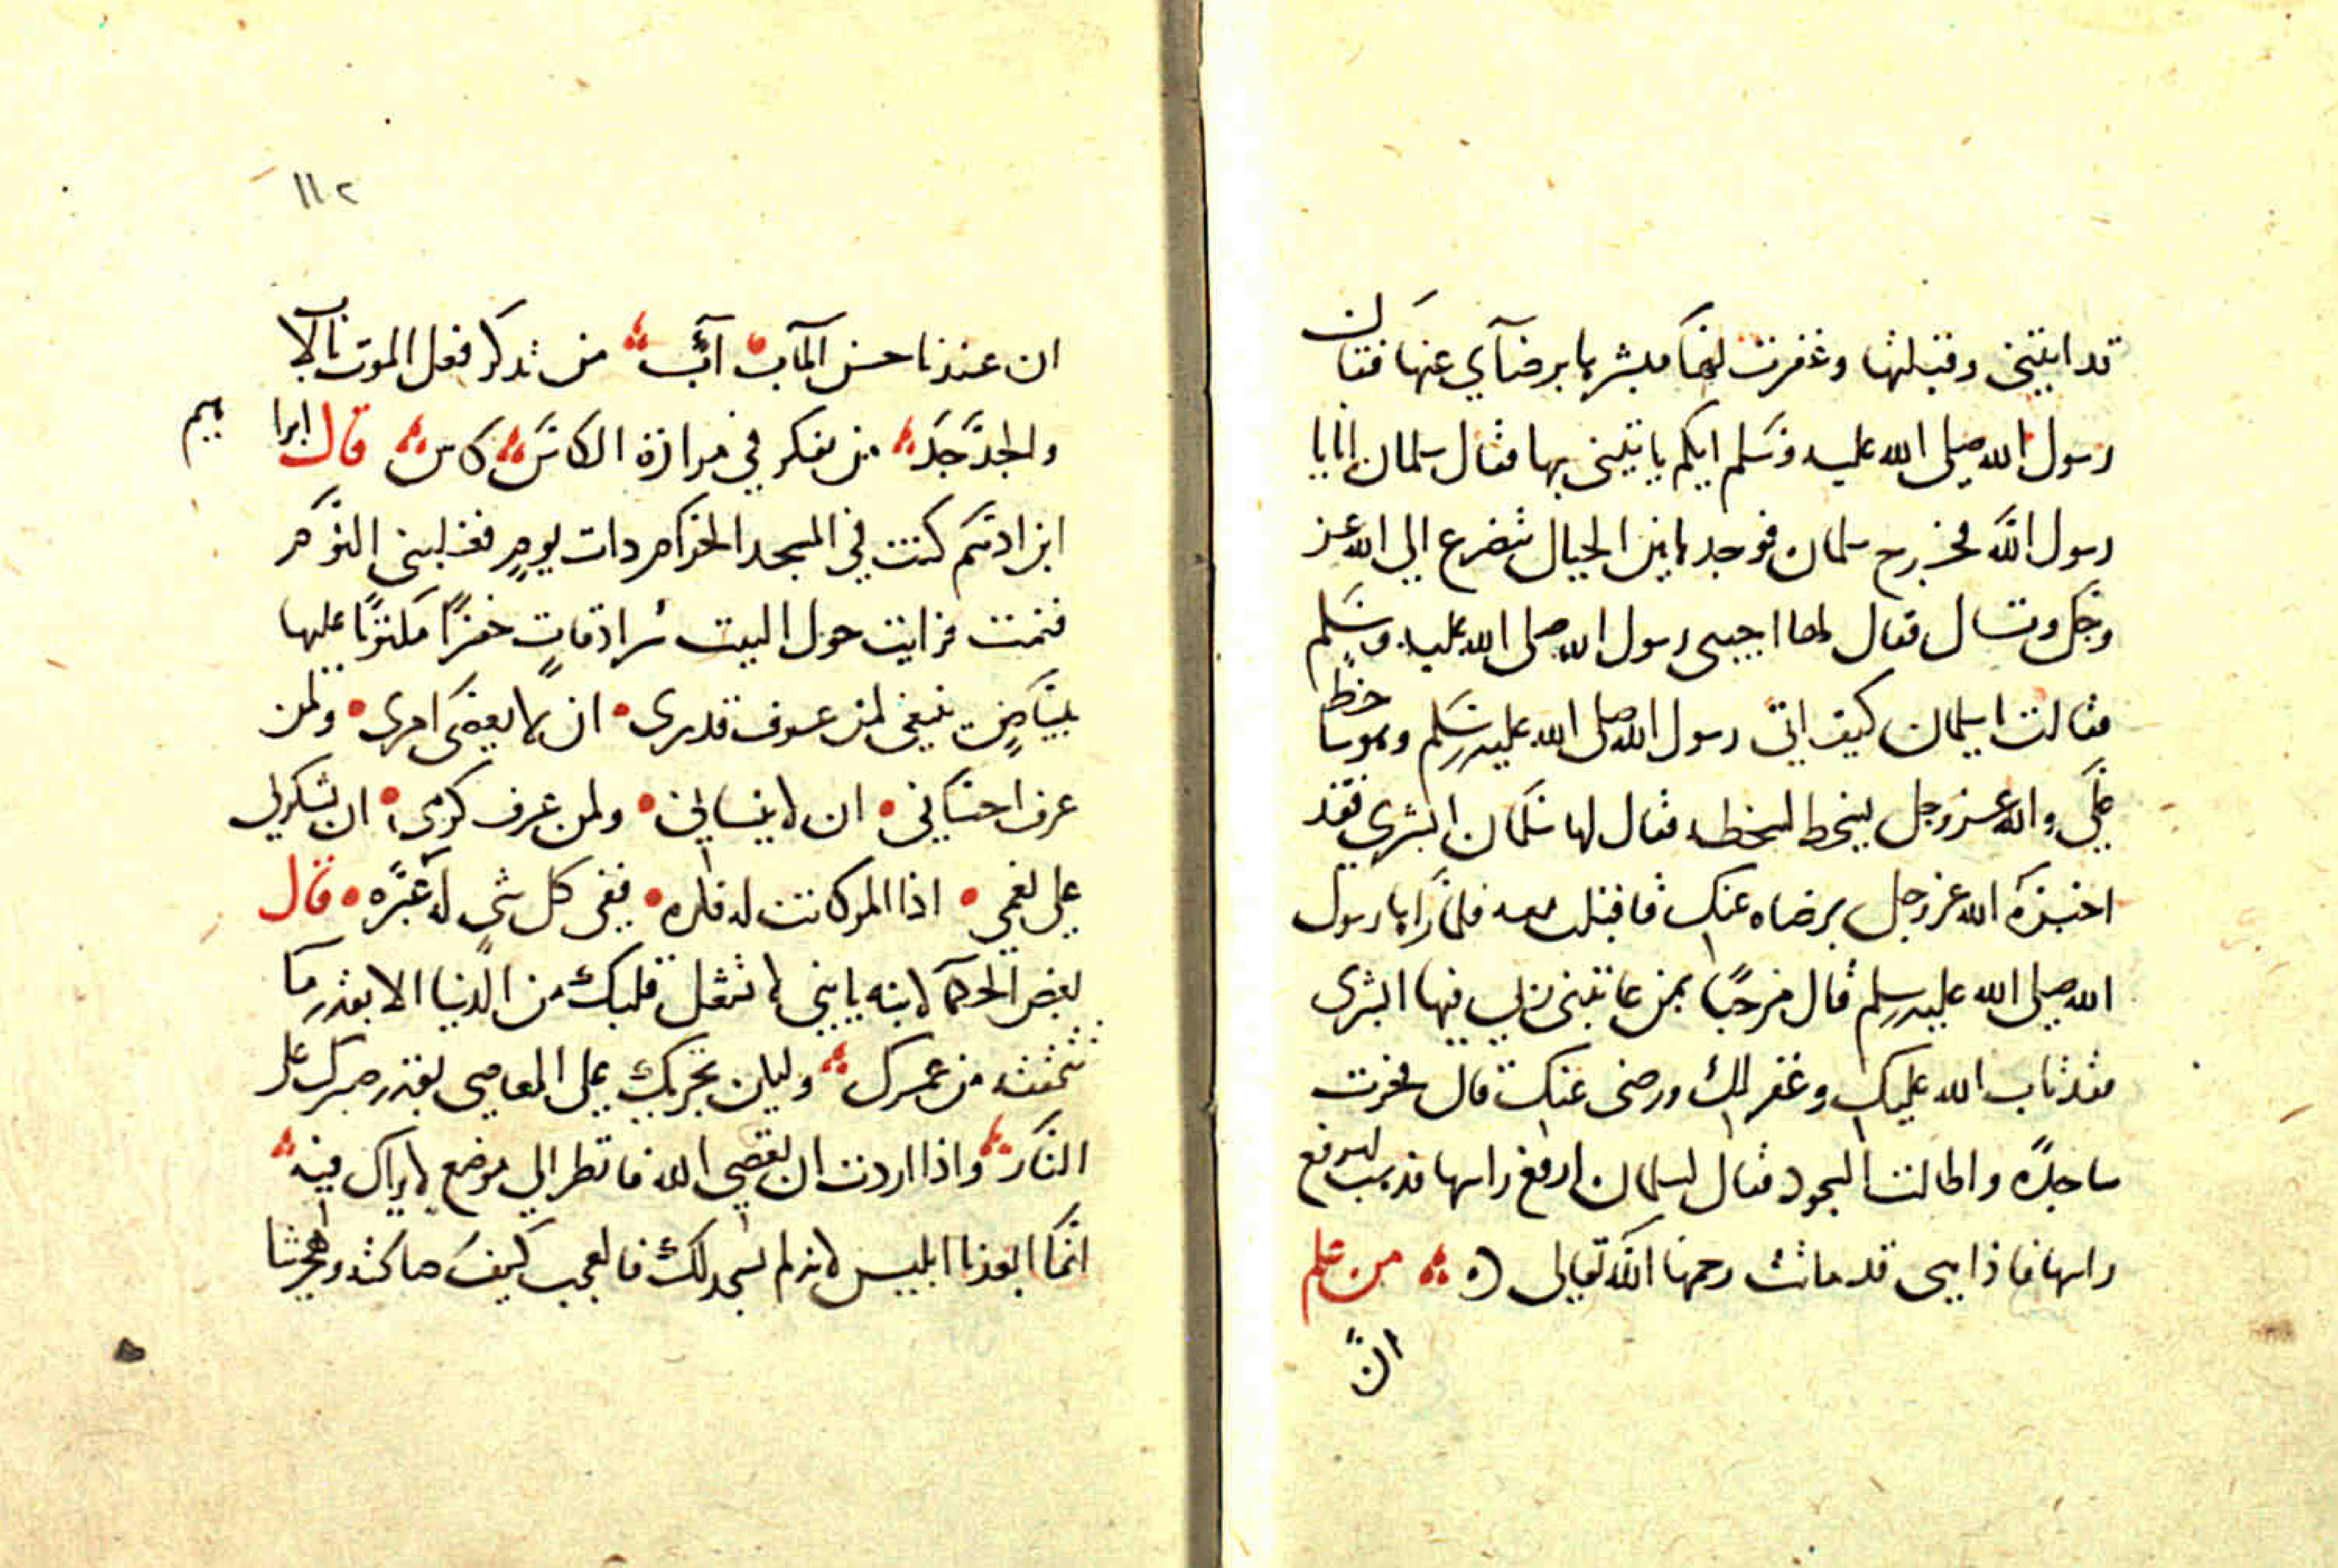 قد ابقيتنى وقبلتها وغفرت لها فبشرها برضآي عنها فقال
رسول الله صلى الله عليه وسلم ايكم ياتينى بها فقال سلمان انا يا
رسول الله فخرج سلمان فوجدها بين الجبال تتضرع الي الله عز
وجل وتسال فقال لها اجيبى رسول الله صلى الله عليه وسلم
فقالت يا سلمان كيف اتى رسول الله صلى الله عليه وسلم وهو ساخط
علي والله عز وجل يسخط لسخطه فقال لها سلمان ابشري فقد
اخبره الله عز وجل برضاه عنك فاقبلت معه فلما راها رسول
الله صلى الله عليه وسلم قال مرحبًا بمن عاتبنى ربي فيها ابشرى
فقد تاب الله عليك وغفر لك ورضى عنك قال فخرت
ساجدةً واطالت السجود فقال لسلمان ارفع راسها فذهب ليرفع
راسها فاذا هى قد ماتت رحمها الله تعالى ه من علم
انّ
١١٢
ان عندنا حسن المآب آبّ من تذكر فعل الموت بالاب
والجدّ جَدّ من يفكر في مرارة الكاس كاس قال ابراهيم
ابن ادهم كنت في المسجد الحرام ذات يومٍ فغلبنى النوم
فنمت فرايت حول البيت سرادقاتٍ خضرًا مكتوبًا عليها
ببياضٍ ينبغى لمن عرف قدرى ان لا يعصى امرى ولمن
عرف احسانى ان لا ينسانى ولمن عرف كرمى ان يشكرنى
على نعمى اذا المرء كانت له فكرة ففى كل شىء له عبرة قال
بعض الحكمآ لابنه يا بنى لا تشغل قلبك من الدنيا الا بقدر ما
من عمرك وليكن تجريك على المعاصى بقدر صبرك على
النار واذا اردت ان تعصى الله فانظر الى موضع لا يراك فيه
انما ابعدنا ابليس لانه لم يسجد لك فالعجب كيف صالحته وهجرتنا